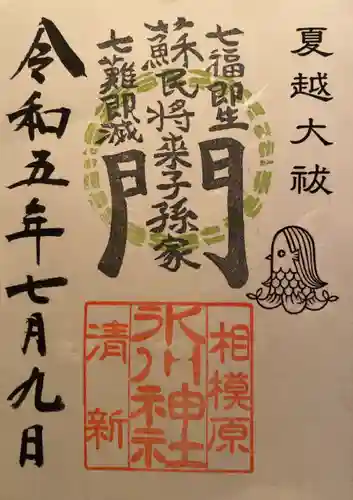 夏越大祓
七福即生
蘇民将来子孫家
門
七難即滅
相模原
氷川神社
清新
令和五年七月九日